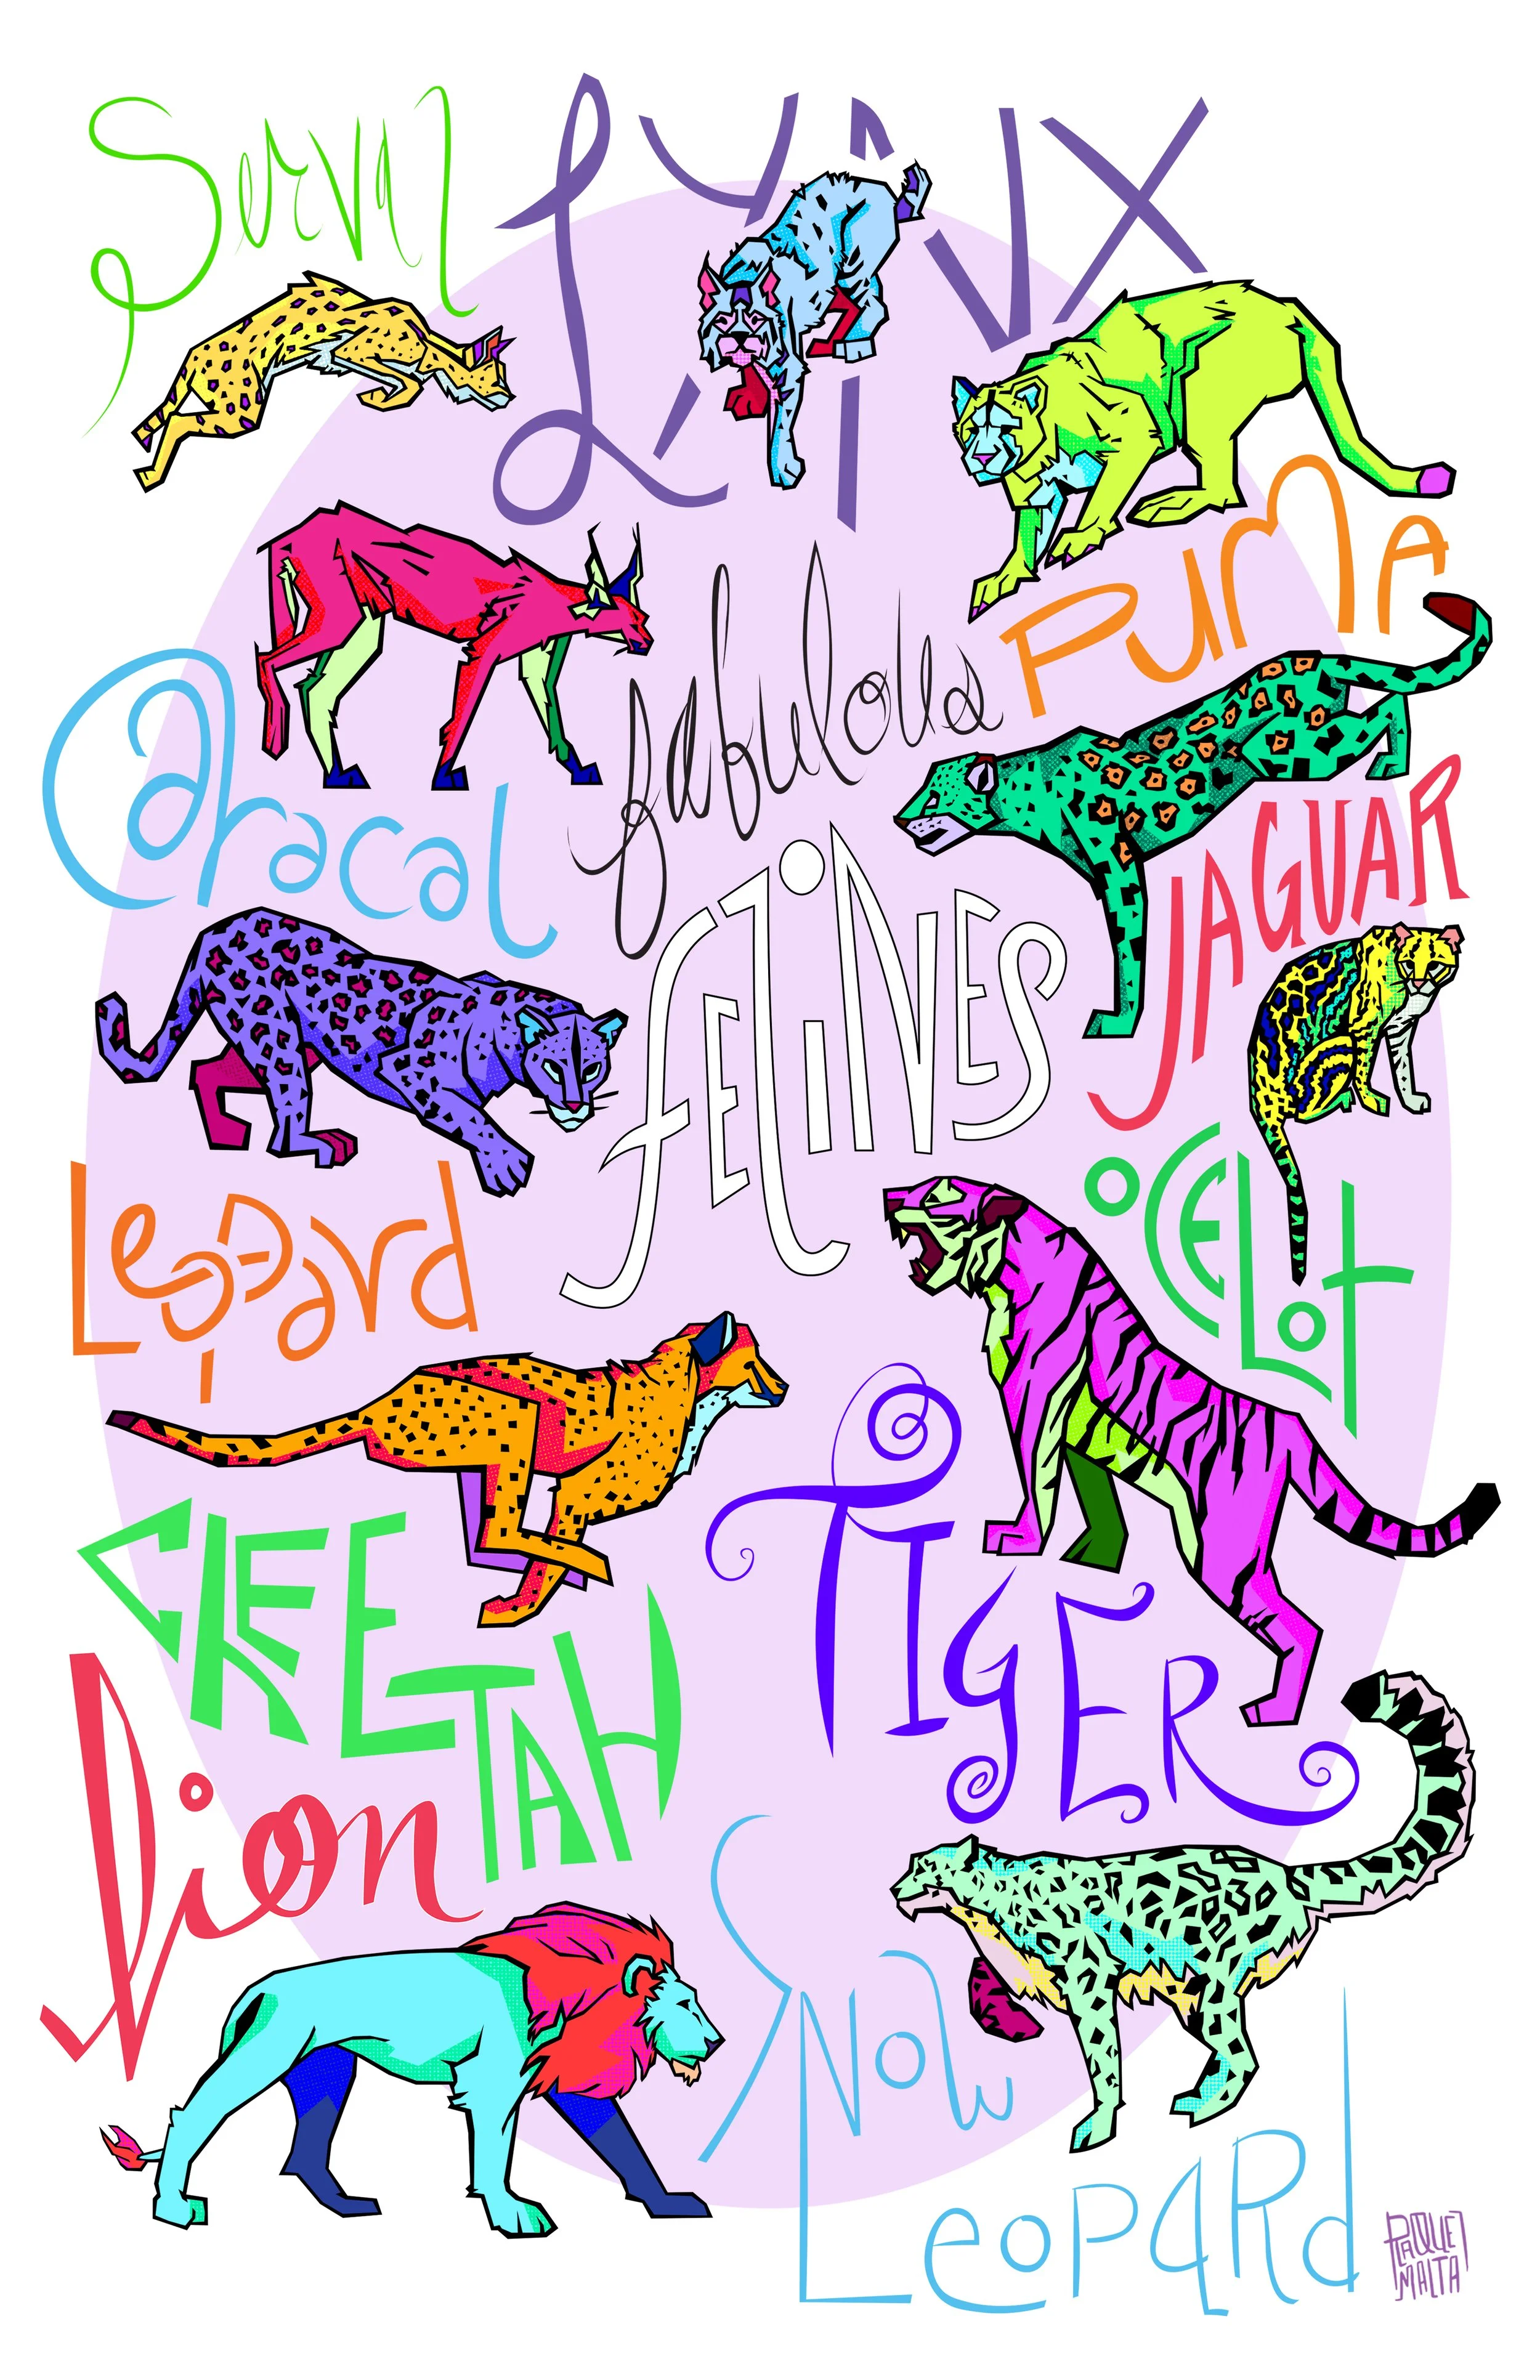 Serval
Lynx
Puma
fabulous
Felines
Caracal
JAGUAR
Leopard
OCELOT
CHEETAH
TIGER
Lion
Snow
Leopard